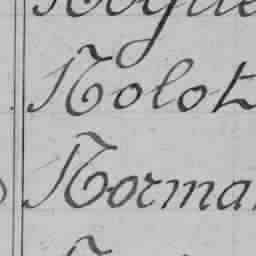 Nolot
Norma